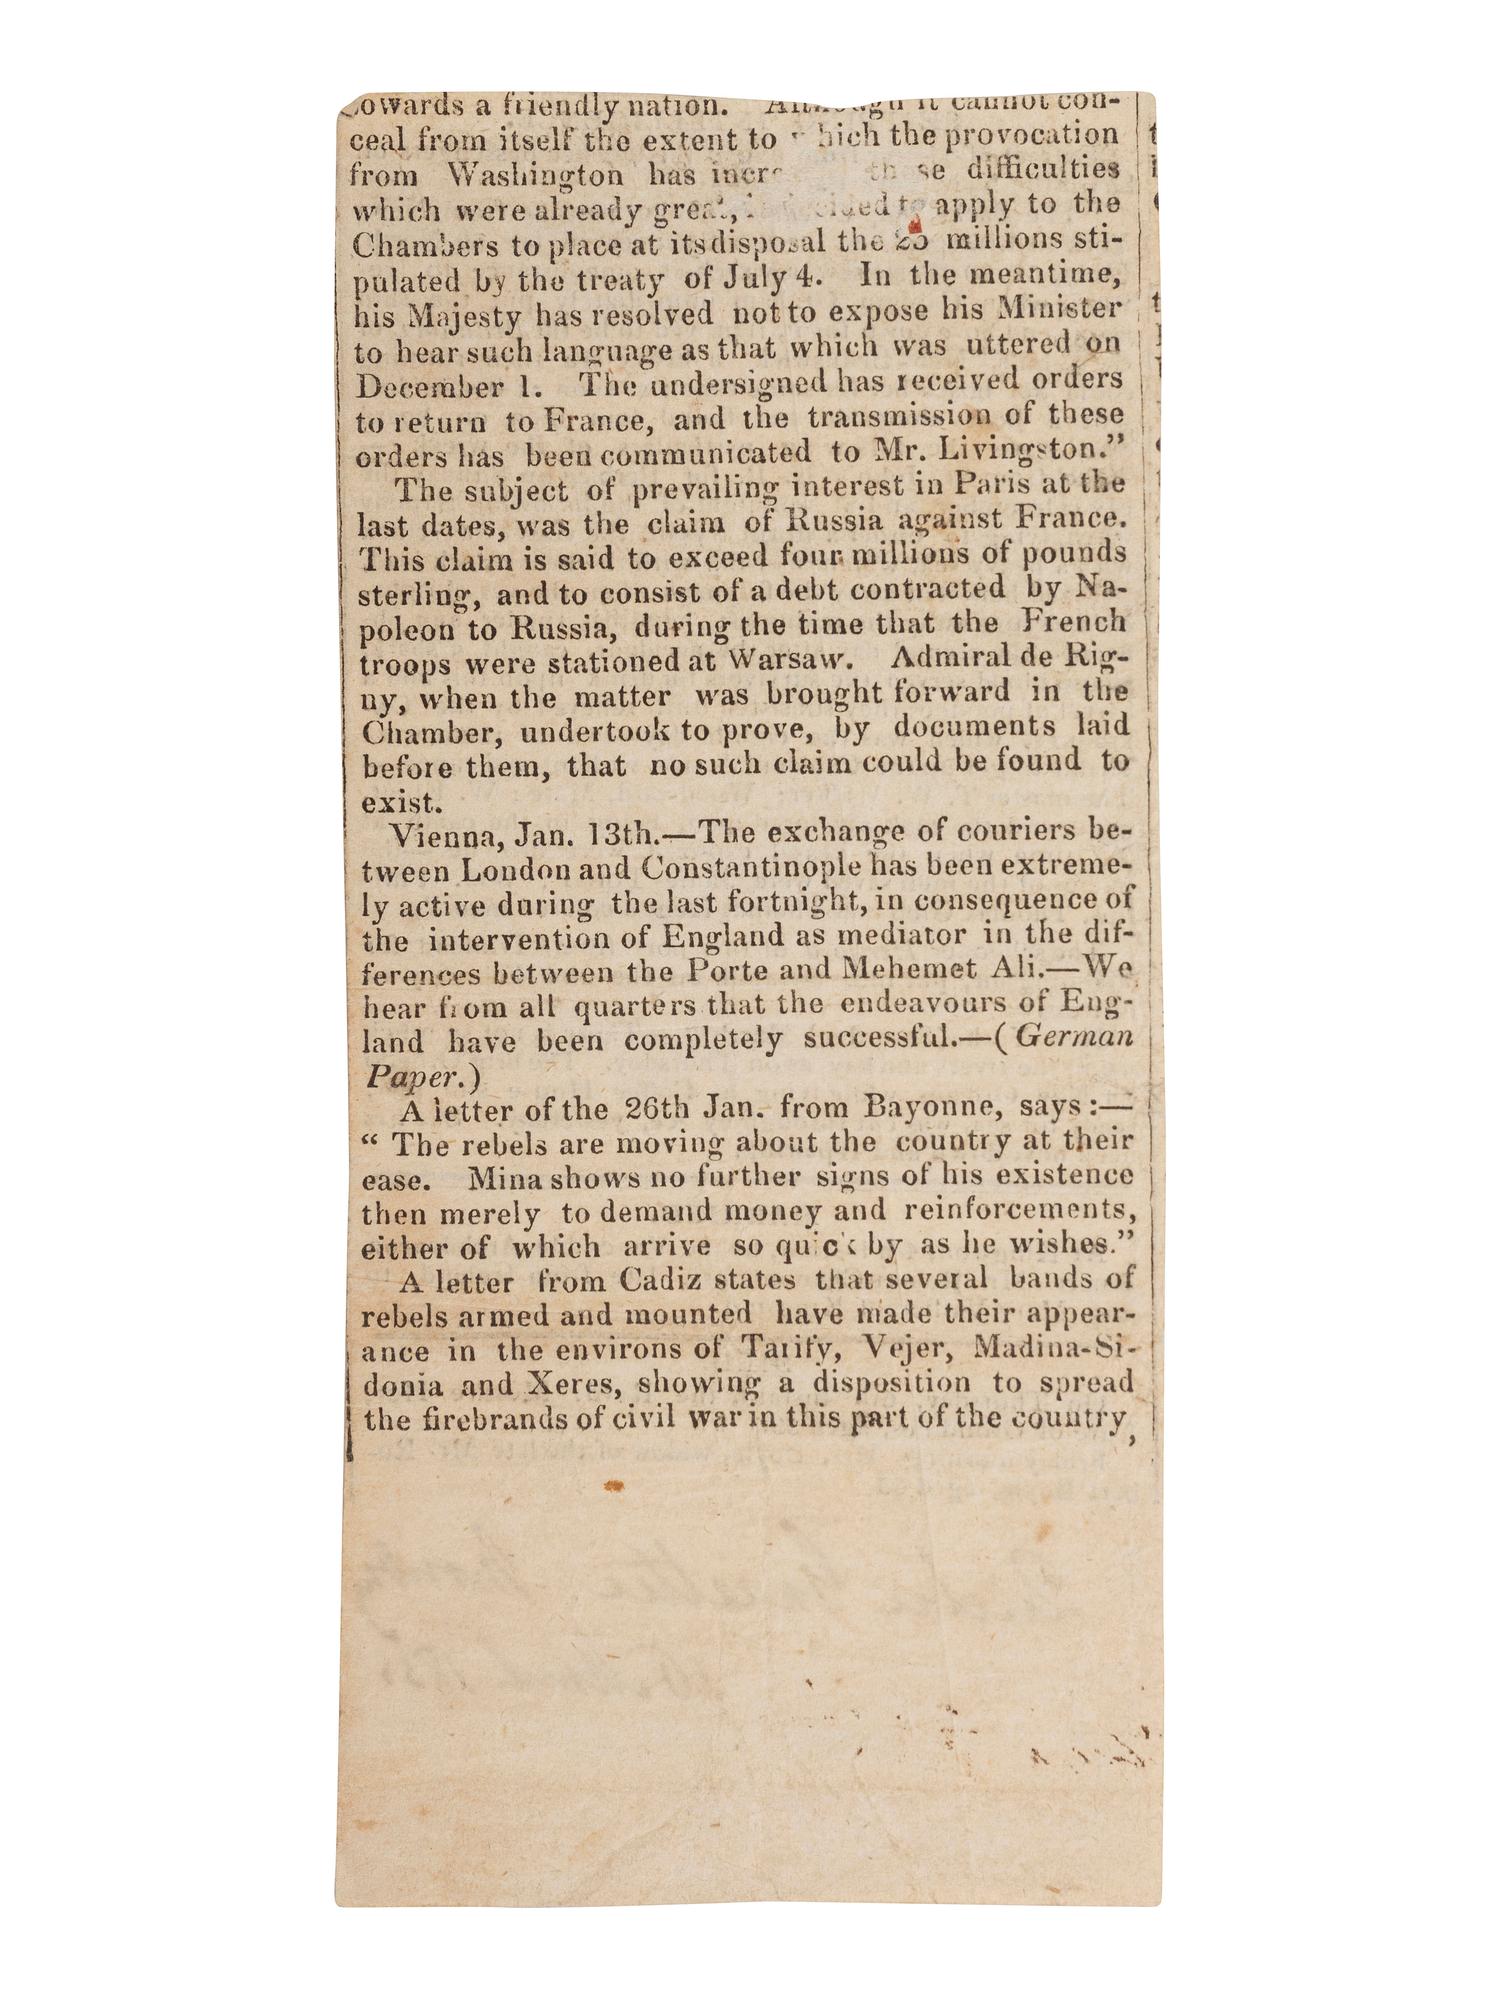 towards a friendly nation. Although it cannot con-
ceal from itself the extent to which the provocation
from Washington has these difficulties
which were already great, to apply to the
Chambers to place at its disposal the 25 millions sti-
pulated by the treaty of July 4. In the meantime,
his Majesty has resolved not to expose his Minister
to hear such language as that which was uttered on
December 1. The undersigned has received orders
to return to France, and the transmission of these
orders has been communicated to Mr. Livingston.”
The subject of prevailing interest in Paris at the
last dates, was the claim of Russia against France.
This claim is said to exceed four millions of pounds
sterling, and to consist of a debt contracted by Na-
poleon to Russia, during the time that the French
troops were stationed at Warsaw. Admiral de Rig-
ny, when the matter was brought forward in the
Chamber, undertook to prove, by documents laid
before them, that no such claim could be found to
exist.
Vienna, Jan. 13th.—The exchange of couriers be-
tween London and Constantinople has been extreme-
ly active during the last fortnight, in consequence of
the intervention of England as mediator in the dif-
ferences between the Porte and Mehemet Ali.—We
hear from all quarters that the endeavours of Eng-
land have been completely successful.—(German
Paper.)
A letter of the 26th Jan. from Bayonne, says:—
“ The rebels are moving about the country at their
ease. Mina shows no further signs of his existence
then merely to demand money and reinforcements,
either of which arrive so quick by as he wishes.”
A letter from Cadiz states that several bands of
rebels armed and mounted have made their appear-
ance in the environs of Tarify, Vejer, Madina-Si-
donia and Xeres, showing a disposition to spread
the firebrands of civil war in this part of the country,